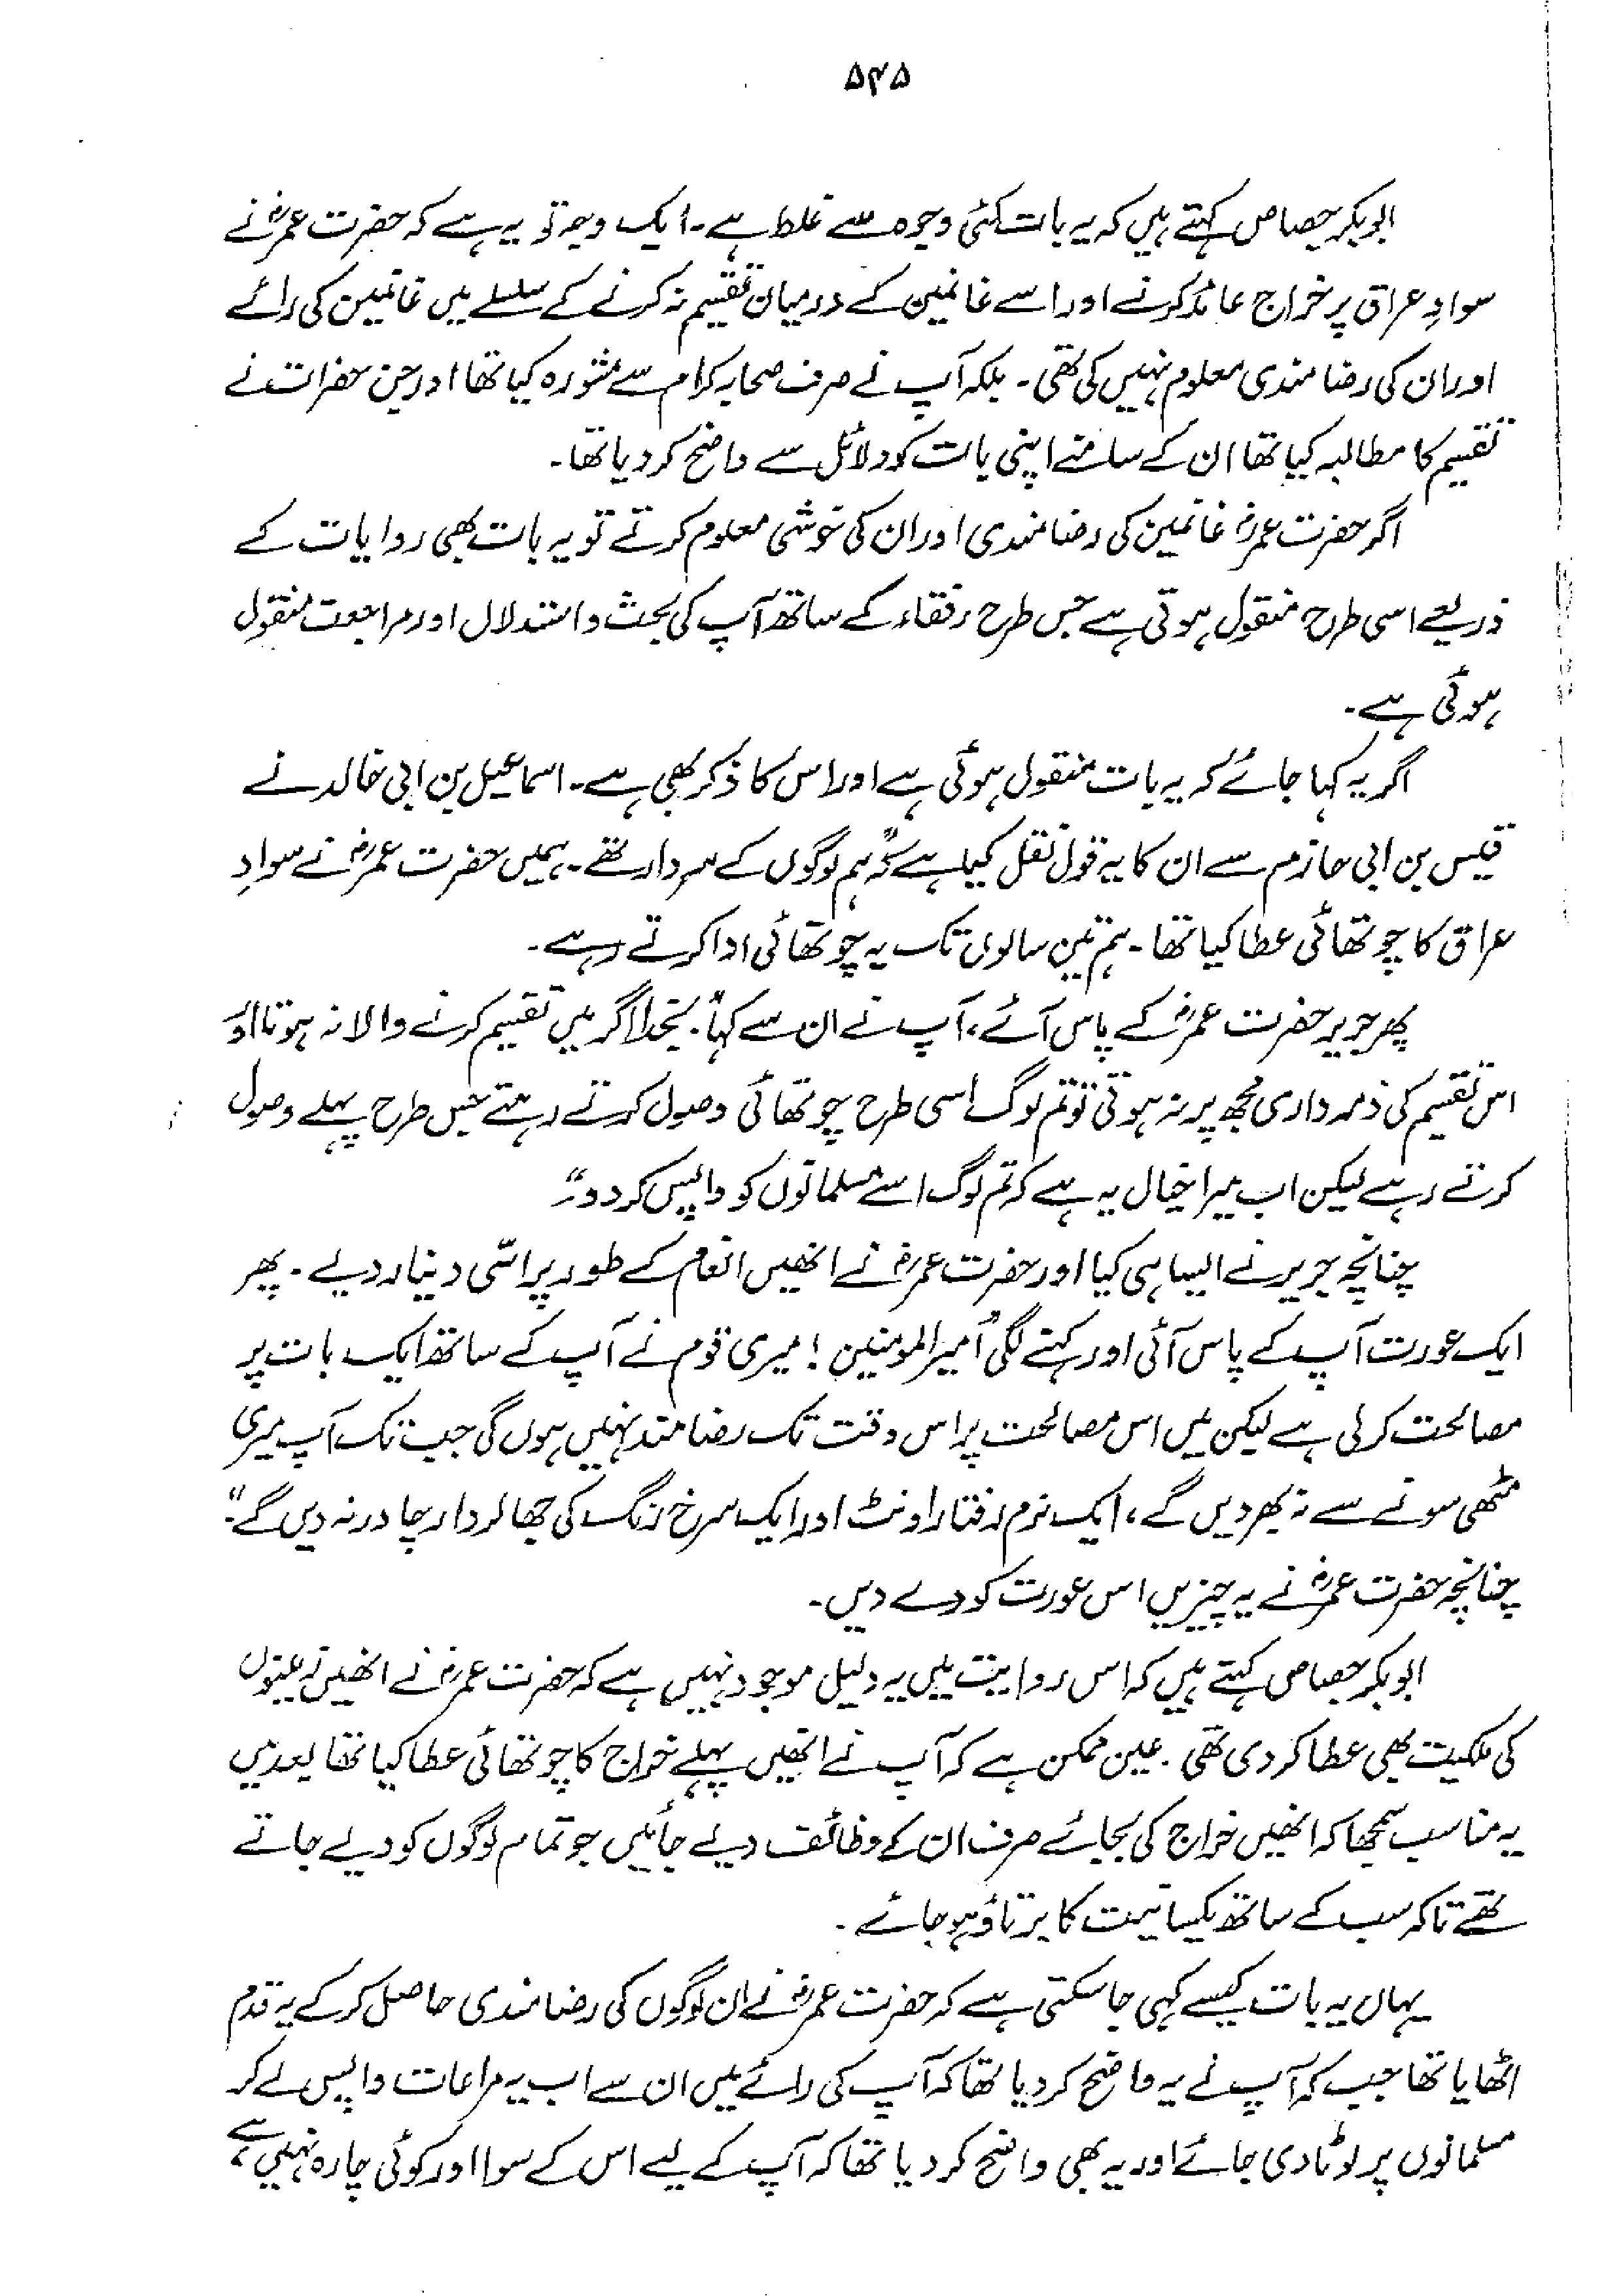 ۵۴۵
ابوبکر جصاص کہتے ہیں کہ یہ بات کئی وجوہ سے غلط ہے۔ ایک وجہ تو یہ ہے کہ حضرت عمرؓ نے
سوادِ عراق پر خراج عائد کرنے اور اسے غانمین کے درمیان تقسیم نہ کرنے کے سلسلے میں غانمین کی رائے
اور ان کی رضا مندی معلوم نہیں کی تھی۔ بلکہ آپ نے صرف صحابہ کرام سے مشورہ کیا تھا اور جن حضرات نے
تقسیم کا مطالبہ کیا تھا ان کے سامنے اپنی بات کو دلائل سے واضح کر دیا تھا۔
اگر حضرت عمرؓ غانمین کی رضا مندی اور ان کی خوشی معلوم کرتے تو یہ بات بھی روایات کے
ذریعے اسی طرح منقول ہوتی ہے جس طرح رفقاء کے ساتھ آپ کی بحث و استدلال اور مراجعت منقول
ہوئی ہے۔
اگر یہ کہا جائے کہ یہ بات منقول ہوئی ہے اور اس کا ذکر بھی ہے۔ اسماعیل بن ابی خالد نے
قیس بن ابی حازم سے ان کا یہ قول نقل کیا ہے کہ "ہم لوگوں کے سردار تھے۔ ہمیں حضرت عمرؓ نے سوادِ
عراق کا چوتھائی عطا کیا تھا۔ ہم تین سالوں تک یہ چوتھائی ادا کرتے رہے۔
پھر جریر حضرت عمرؓ کے پاس آئے، آپ نے ان سے کہا "بخدا اگر میں تقسیم کرنے والا نہ ہوتا اور
اس تقسیم کی ذمہ داری مجھ پر نہ ہوتی تو تم لوگ اسی طرح چوتھائی وصول کرتے رہتے جس طرح پہلے وصول
کرتے رہے لیکن اب میرا خیال یہ ہے کہ تم لوگ اسے مسلمانوں کو واپس کر دو۔"
چنانچہ جریر نے ایسا ہی کیا اور حضرت عمرؓ نے انھیں انعام کے طور پر اسّی دینار دیے۔ پھر
ایک عورت آپ کے پاس آئی اور کہنے لگی "امیرالمومنین! میری قوم نے آپ کے ساتھ ایک بات پر
مصالحت کرلی ہے لیکن میں اس مصالحت پر اس وقت تک رضا مند نہیں ہوں گی جب تک آپ میری
مٹھی سونے سے نہ بھر دیں گے، ایک نرم رفتار اونٹ اور ایک سرخ رنگ کی جھالر دار چادر نہ دیں گے۔"
چنانچہ حضرت عمرؓ نے یہ چیزیں اس عورت کو دے دیں۔
ابوبکر جصاص کہتے ہیں کہ اس روایت میں یہ دلیل موجود نہیں ہے کہ حضرت عمرؓ نے انھیں زمینوں
کی ملکیت بھی عطا کر دی تھی۔ عین ممکن ہے کہ آپ نے انھیں پہلے خراج کا چوتھائی عطا کیا تھا بعد میں
یہ مناسب سمجھا کہ انھیں خراج کی بجائے صرف ان کے وظائف دیے جائیں جو تمام لوگوں کو دیے جاتے
تھے تاکہ سب کے ساتھ یکسانیت کا برتاؤ ہو جائے۔
یہاں یہ بات کیسے کہی جا سکتی ہے کہ حضرت عمرؓ نے ان لوگوں کی رضا مندی حاصل کر کے یہ قدم
اٹھایا تھا جب کہ آپ نے یہ واضح کر دیا تھا کہ آپ کی رائے میں ان سے اب یہ مراعات واپس لے کر
مسلمانوں پر لوٹا دی جائے اور یہ بھی واضح کر دیا تھا کہ آپ کے لیے اس کے سوا اور کوئی چارہ نہیں ہے،